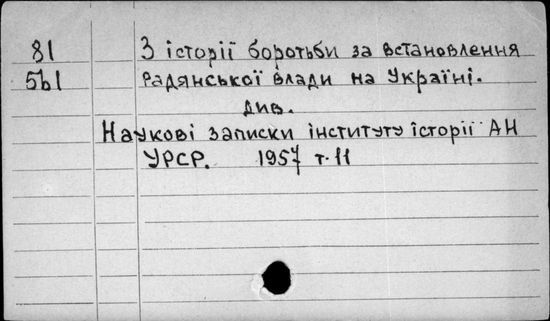 81 З історії боротьби за встановлення
561 Радянської влади на Україні.
див.
Наукові записки інституту історії АН
УРСР. 1957 т. 11